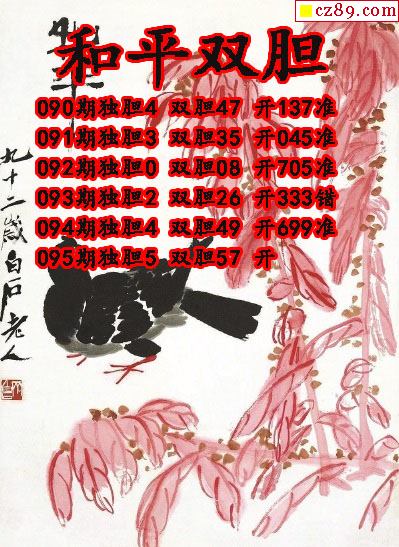 cz89.com
和平双胆
090期独胆4 双胆47 开137准
091期独胆3 双胆35 开045准
092期独胆0 双胆08 开705准
093期独胆2 双胆26 开333错
094期独胆4 双胆49 开699准
095期独胆5 双胆57 开
九十二岁白石老人